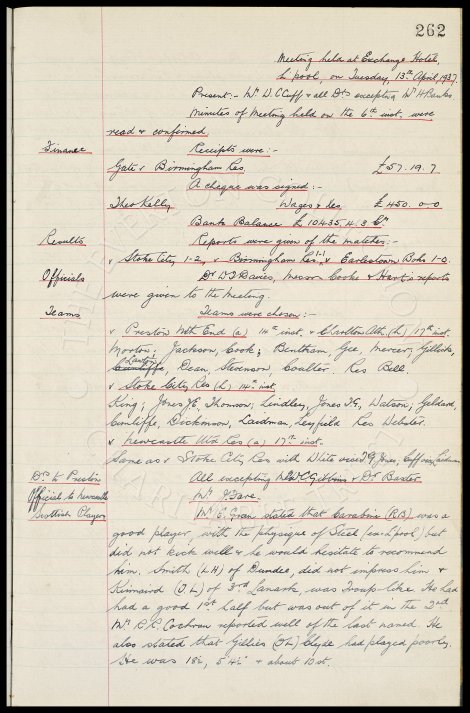 262
Meeting held at Exchange Hotel,
L'pool, on Tuesday, 13th April, 1937.
Present:- Mr W.C. Cuff & all Drs excepting Mr H Banks
Minutes of Meeting held on the 6th inst. were
read & confirmed.
Finance Receipts were:-
Gate v Birmingham Res. £57.19.7
A cheque was signed:-
Theo Kelly Wages & Xes £450.0.0
Bank Balance £10435.4.3 Cr
Results Reports were given of the matches:-
v Stoke City, 1-2, v Birmingham Res. 1-1, & Earlestown Bohs 1-0.
Officials Dr D.J. Davies, Messrs Cooke & Hart's reports
were given to the Meeting.
Teams Teams were chosen:-
v Preston Nth End (a) 14th inst. & Charlton Ath. (h) 17th inst.
Morton; Jackson, Cook; Bentham, Gee, Mercer; Gillick,
Cunliffe, Dean, Stevenson, Coulter. Res Bell.
v Stoke City Res (h) 14th inst.
King; Jones JE, Thomson; Lindley, Jones TG, Watson; Geldard,
Cunliffe, Dickinson, Laidman, Leyfield Res Webster.
v Newcastle Utd Res (a) 17th inst.
Same as v Stoke City Res with White vice TG Jones,
Drs to Preston All excepting Mr WC Gibbins & Dr Baxter
Official to Newcastle
Scottish Players Mr E. Green stated that Carabine (RB) was a
good player, with the physique of Steel (ex L'pool) but
did not kick well & he would hesitate to recommend
him. Smith (LH) of Dundee, did not impress him &
Kinnaird (OL) of 3rd Lanark, was Troup-like. He had
had a good 1st half but was out of it in the 2nd.
Mr Cochran reported well of the last named. He
also stated that Gillies (IL) Clyde had played poorly.
He was 18½, 5'4½" & about 10st.